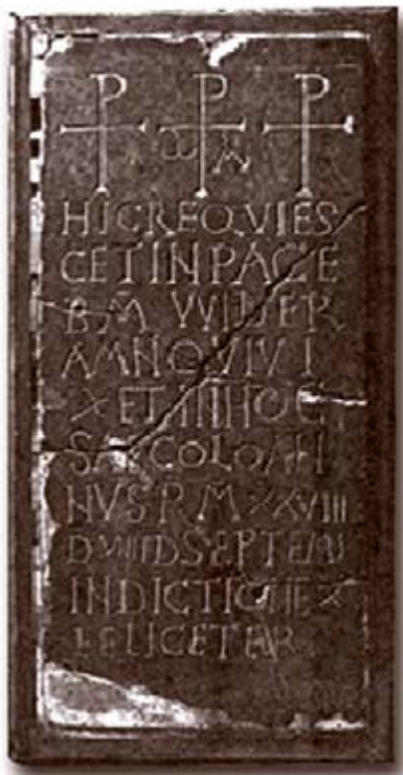 ω Α
HICREQVIES
CETINPACE
BM WIDER
AMNQVIVI
X ET IN HOC
SAECOLOAN
NVSPM XXVIII
SEPTEM
INDICTIONE X
FELICETER